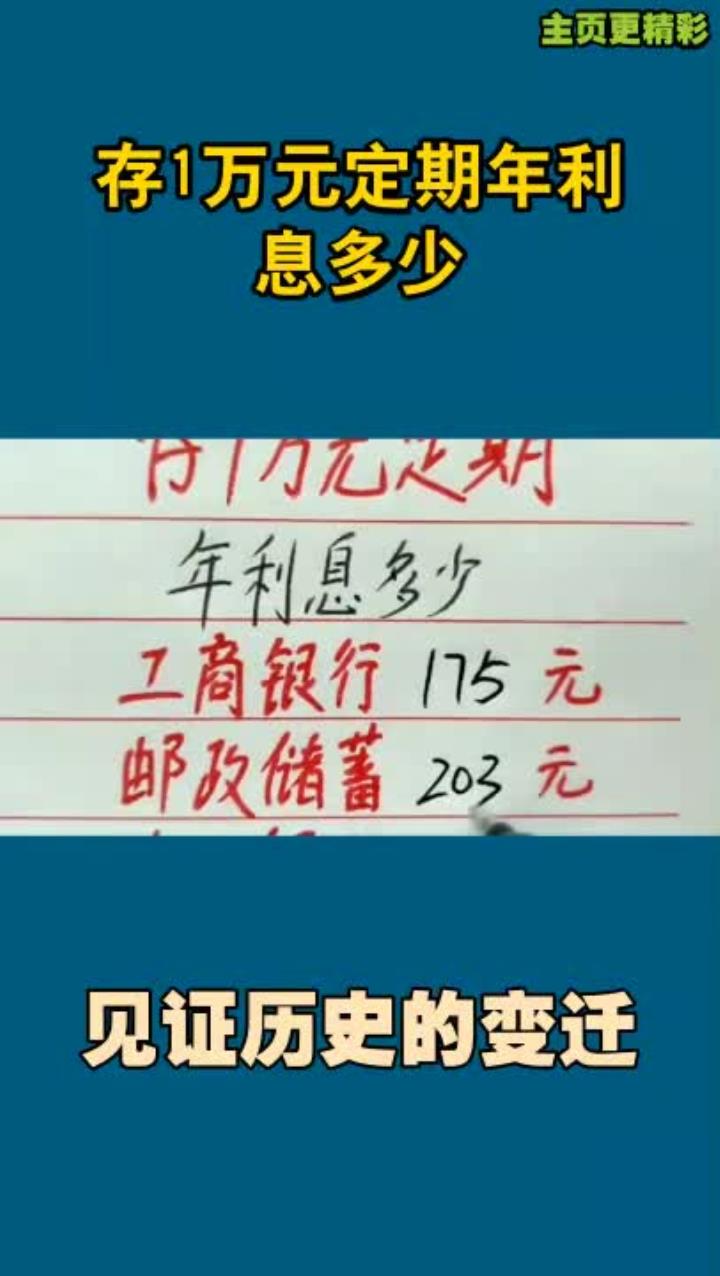 主页更精彩
存1万元定期年利
息多少
存1万元定期
年利息多少
工商银行 175 元
邮政储蓄 203 元
见证历史的变迁